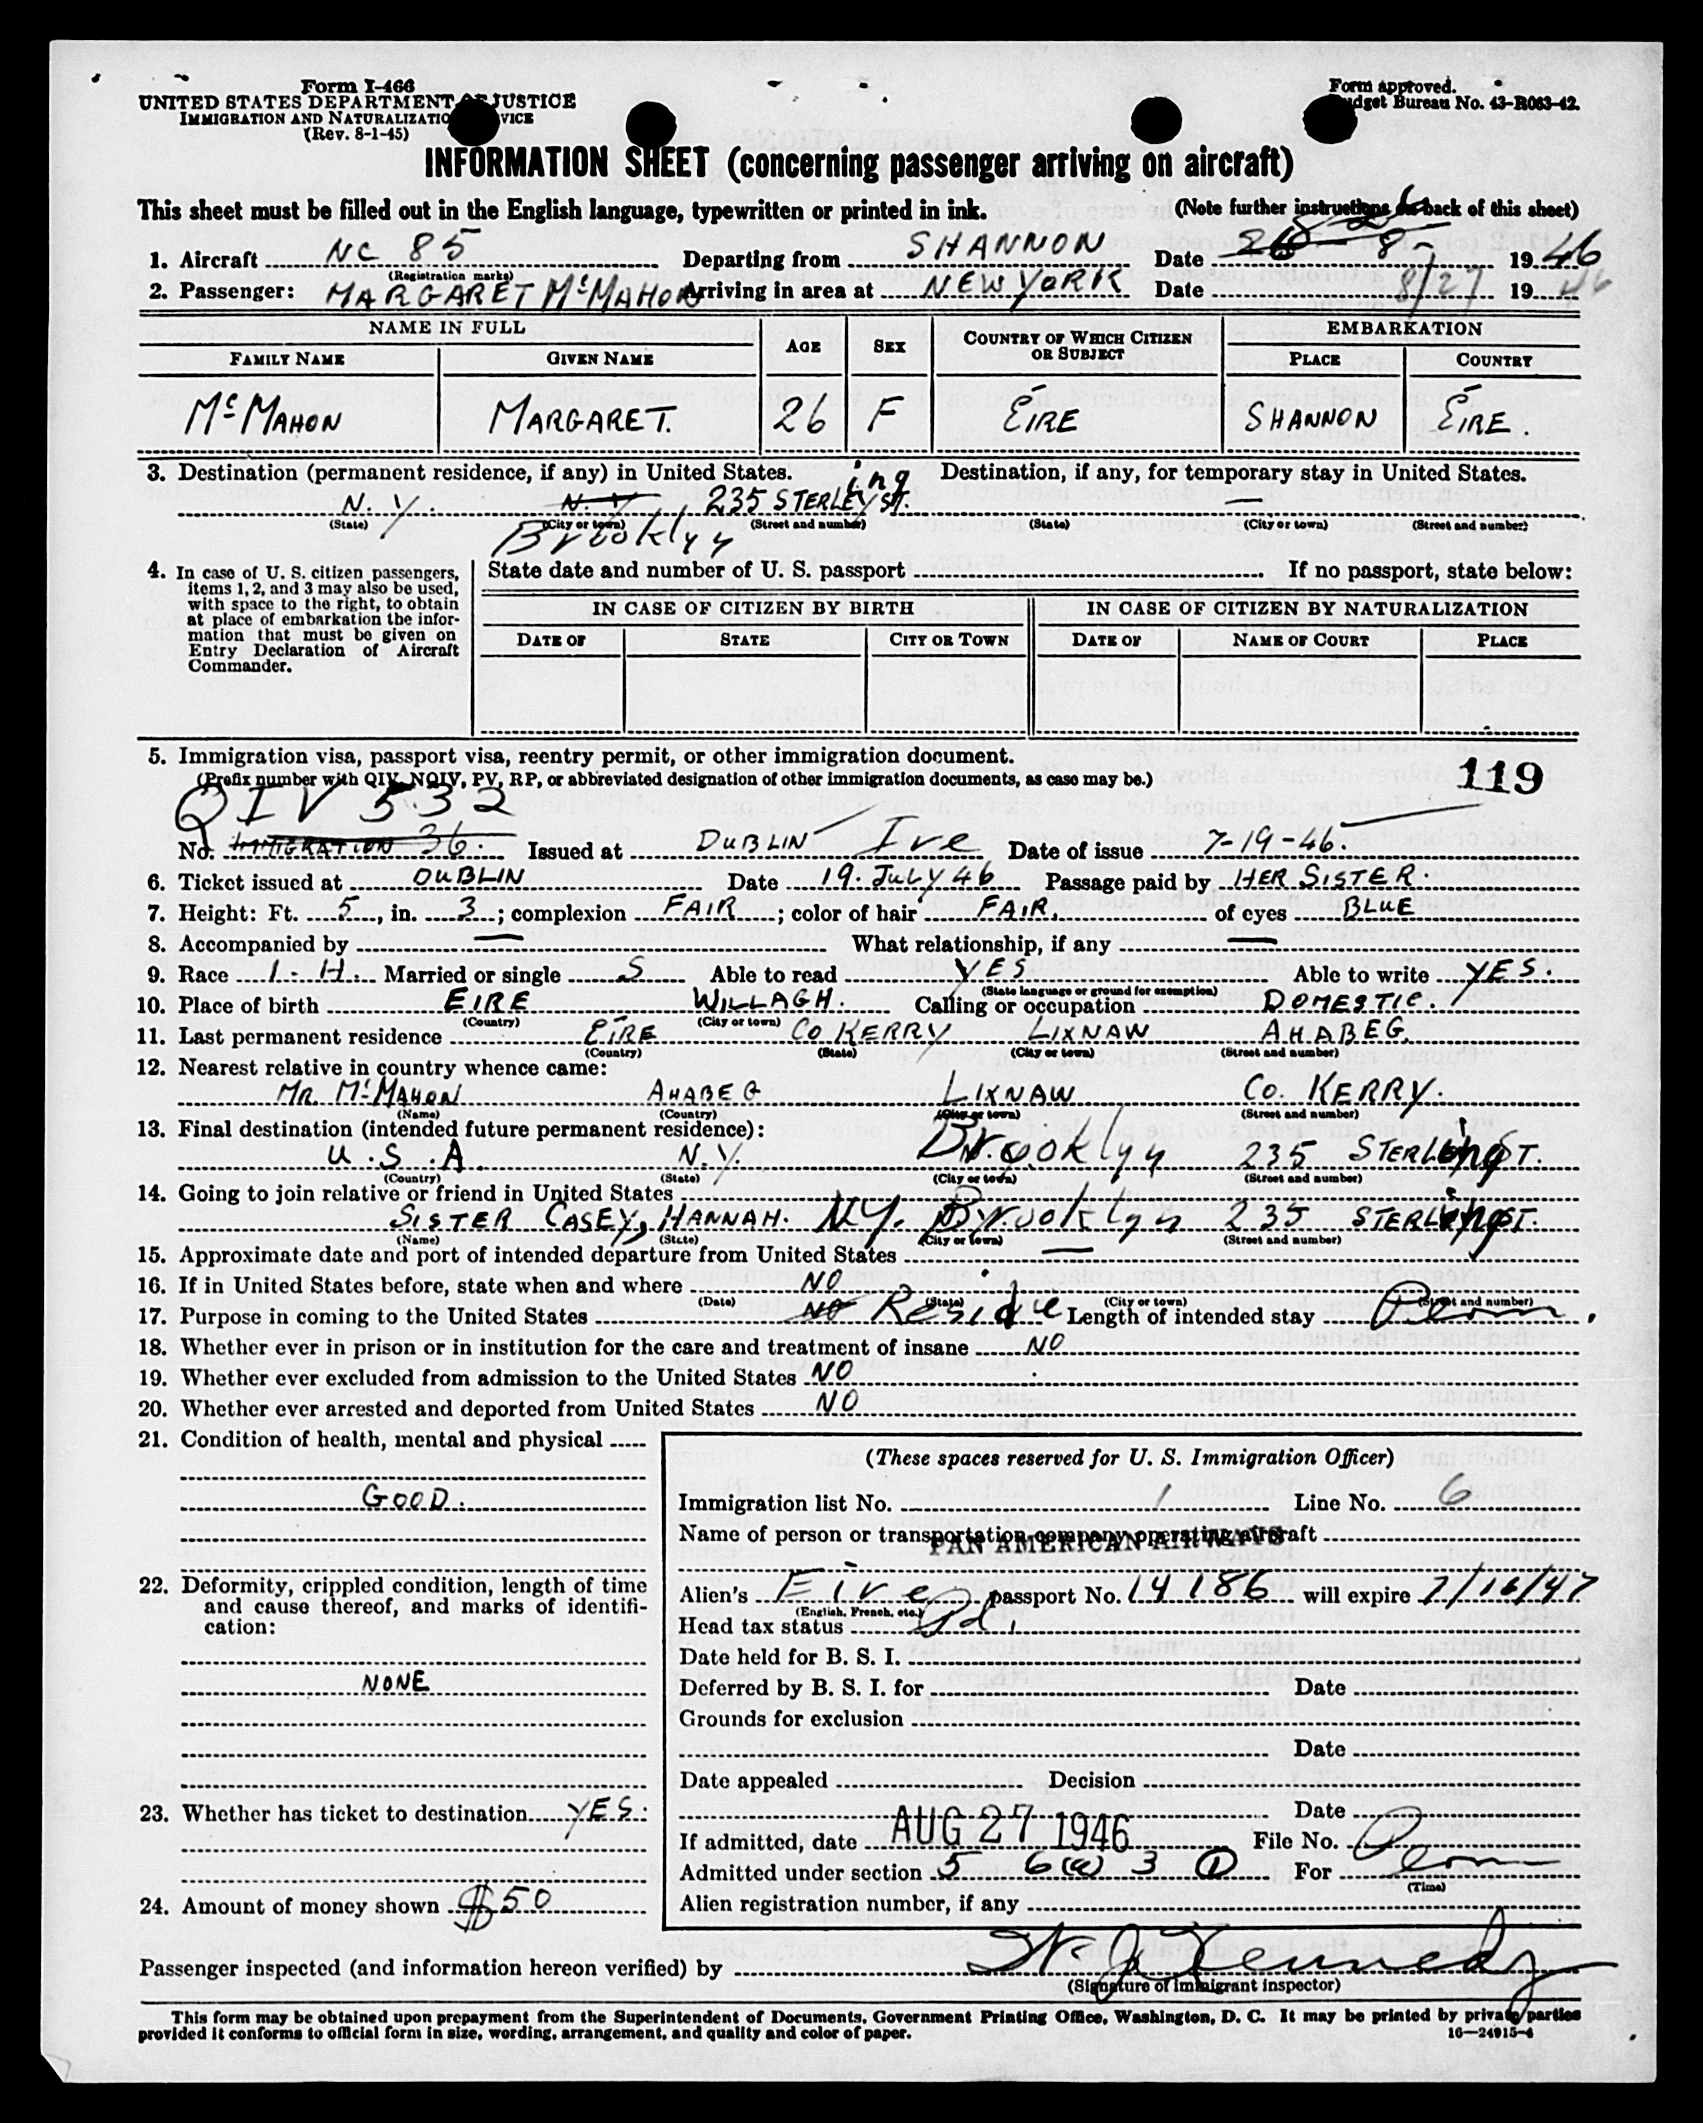 Form I-466
UNITED STATES DEPARTMENT OF JUSTICE
IMMIGRATION AND NATURALIZATION SERVICE
(Rev. 8-1-45)
Form approved.
Budget Bureau No. 43-R063-42.
INFORMATION SHEET (concerning passenger arriving on aircraft)
This sheet must be filled out in the English language, typewritten or printed in ink. (Note further instructions on back of this sheet)
1. Aircraft NC 85 Departing from SHANNON Date 26 8- 1946
(Registration marks)
2. Passenger: MARGARET McMAHON Arriving in area at NEW YORK Date 8/27 1946
NAME IN FULL AGE SEX COUNTRY OF WHICH CITIZEN OR SUBJECT EMBARKATION
FAMILY NAME GIVEN NAME PLACE COUNTRY
McMAHON MARGARET. 26 F ÉIRE SHANNON ÉIRE.
3. Destination (permanent residence, if any) in United States. Destination, if any, for temporary stay in United States.
N.Y. N.Y 235 STERLEY ing ST. —
(State) (City or town) (Street and number) (State) (City or town) (Street and number)
Brooklyn
4. In case of U. S. citizen passengers, items 1, 2, and 3 may also be used, with space to the right, to obtain at place of embarkation the information that must be given on Entry Declaration of Aircraft Commander.
State date and number of U. S. passport If no passport, state below:
IN CASE OF CITIZEN BY BIRTH IN CASE OF CITIZEN BY NATURALIZATION
DATE OF STATE CITY OR TOWN DATE OF NAME OF COURT PLACE
5. Immigration visa, passport visa, reentry permit, or other immigration document.
(Prefix number with QIV, NQIV, PV, RP, or abbreviated designation of other immigration documents, as case may be.) 119
QIV 532
No. IMMIGRATION 36. Issued at DUBLIN Ire Date of issue 7-19-46.
6. Ticket issued at DUBLIN Date 19. JULY 46 Passage paid by HER SISTER.
7. Height: Ft. 5, in. 3; complexion FAIR; color of hair FAIR. of eyes BLUE
8. Accompanied by — What relationship, if any —
9. Race I.H. Married or single S Able to read YES Able to write YES.
(State language or ground for exemption)
10. Place of birth EIRE WILLAGH. Calling or occupation DOMESTIC.
(Country) (City or town)
11. Last permanent residence ÉIRE CO KERRY LIXNAW AHABEG.
(Country) (State) (City or town) (Street and number)
12. Nearest relative in country whence came:
MR. McMAHON AHABEG LIXNAW CO. KERRY.
(Name) (Country) (City or town) (Street and number)
13. Final destination (intended future permanent residence):
U.S.A. N.Y. Brooklyn 235 STERLing ST.
(Country) (State) (City or town) (Street and number)
14. Going to join relative or friend in United States
SISTER CASEY, HANNAH. NY. Brooklyn 235 STERLing ST.
(Name) (State) (City or town) (Street and number)
15. Approximate date and port of intended departure from United States —
16. If in United States before, state when and where NO
(Date) (State) (City or town) (Street and number)
17. Purpose in coming to the United States NO Reside Length of intended stay Perm.
18. Whether ever in prison or in institution for the care and treatment of insane NO
19. Whether ever excluded from admission to the United States NO
20. Whether ever arrested and deported from United States NO
21. Condition of health, mental and physical
GOOD.
22. Deformity, crippled condition, length of time and cause thereof, and marks of identification:
NONE
23. Whether has ticket to destination YES.
24. Amount of money shown $50
(These spaces reserved for U. S. Immigration Officer)
Immigration list No. 1 Line No. 6
Name of person or transportation company operating aircraft
PAN AMERICAN AIRWAYS
Alien's Eire passport No. 14186 will expire 7/16/47
(English, French, etc.)
Head tax status Pd.
Date held for B. S. I.
Deferred by B. S. I. for Date
Grounds for exclusion
Date
Date appealed Decision
Date
If admitted, date AUG 27 1946 File No.
Admitted under section 5 6(a) 3 1 For Perm
(Time)
Alien registration number, if any
Passenger inspected (and information hereon verified) by W J Kennedy
(Signature of immigrant inspector)
This form may be obtained upon prepayment from the Superintendent of Documents, Government Printing Office, Washington, D. C. It may be printed by private parties
provided it conforms to official form in size, wording, arrangement, and quality and color of paper. 16—24915-4